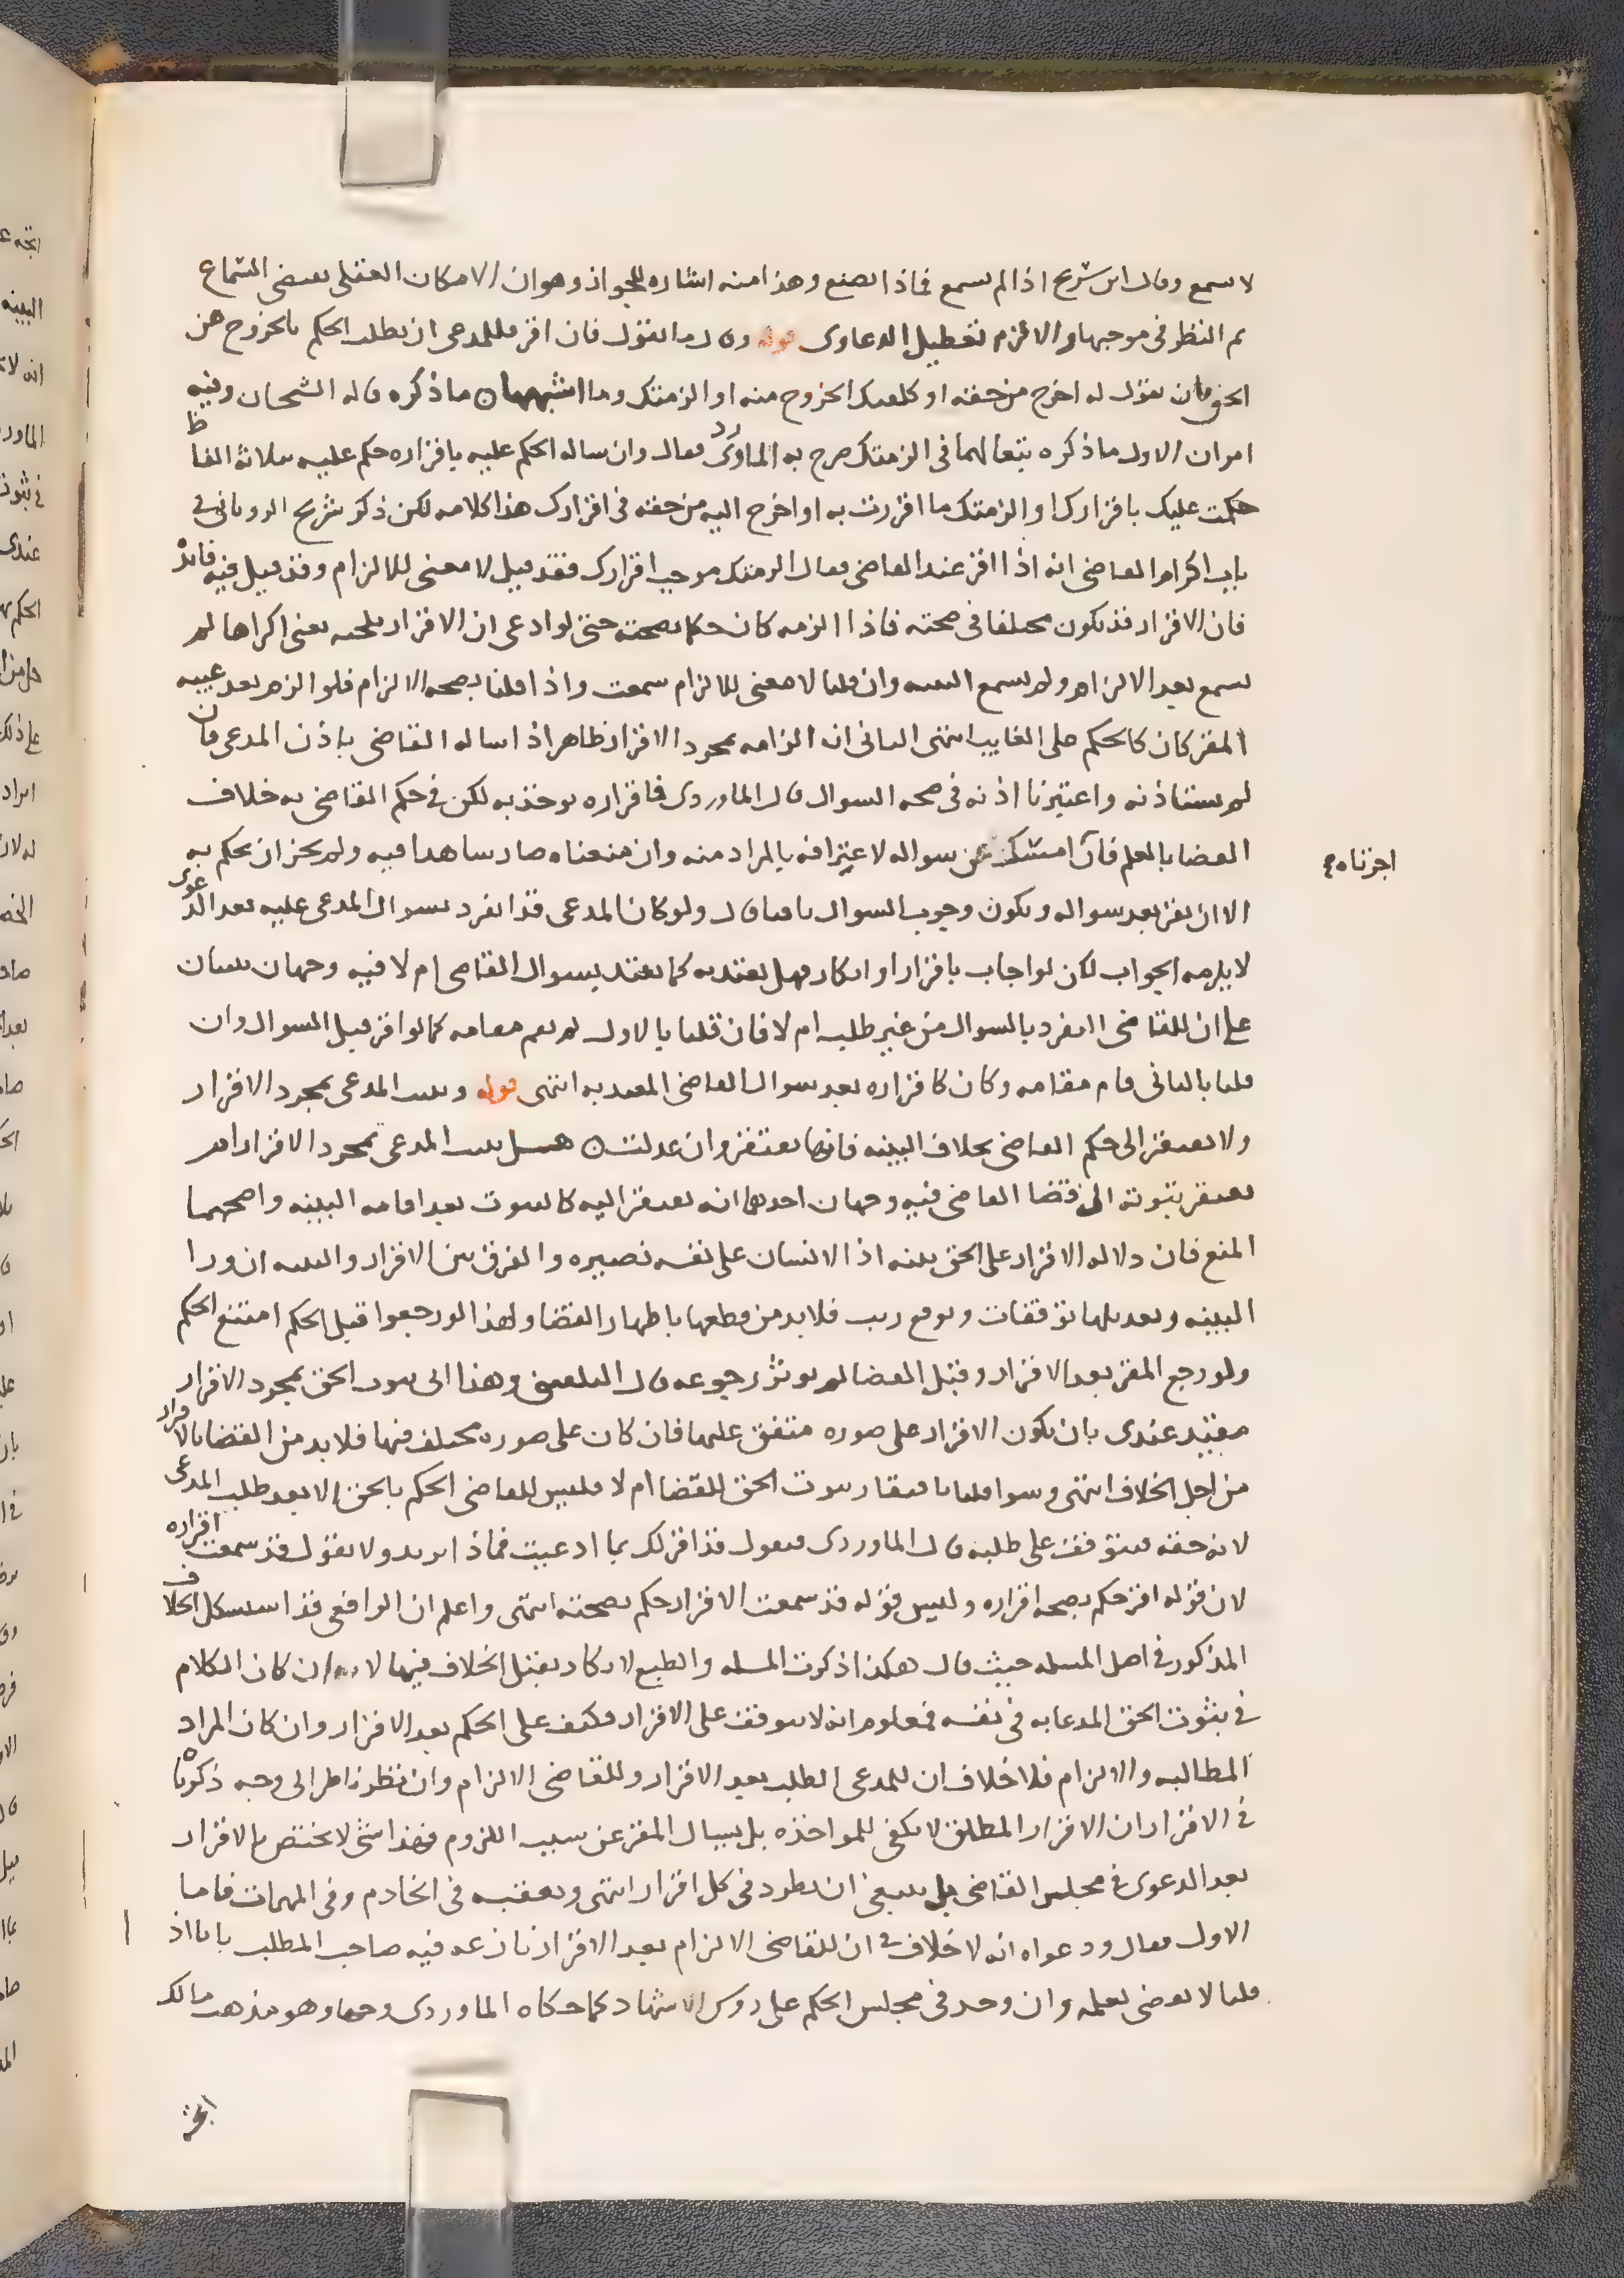 لا يسمع وقال ابن شريح اذا لم يسمع فماذا يصنع وهذا منه اشاره للجواز وهو ان الامكان العقلى يقتضى السماع
ثم النظر فى موجبها والا لزم تعطيل الدعاوى قوله فان اقر فللمدعى ان يطلب الحكم بالخروج من
الحق بان يقول له اخرج من حقه او كلفتك الخروج منه او الزمتك وما اشبههما ما ذكره قاله الشيخان وفيه
امران الاول ما ذكره تبعا لهما فى الزمتك صرح به الماوردى فقال وان ساله الحكم عليه باقراره حكم عليه بثلاثة الفاظ
حكمت عليك باقرارك او الزمتك ما اقررت به او اخرج اليه من حقه فى اقرارك هذا كلامه لكن ذكر شريح الرويانى فى
باب اكرام القاضى انه اذا اقر عند القاضى فقال الزمتك موجب اقرارك فقد قيل لا معنى للالزام وقد قيل فيه فائدة
فان الاقرار قد يكون مختلفا فى صحته فاذا الزمه كان حكما بصحته حتى لو ادعى ان الاقرار بلجئه يعنى اكراها لم
يسمع بعد الالزام ولم يسمع البينه وان قلنا لا معنى للالزام سمعت واذا قلنا بصحه الالزام فلو الزم بعد غيبه
المقر كان كالحكم على الغايب انتهى الثانى ان الزامه بمجرد الاقرار ظاهر اذا ساله القاضى باذن المدعى فان
لم يستاذنه واعتبرنا اذنه فى صحه السوال قال الماوردى فاقراره يوخذ به لكن فى حكم القاضى به خلاف
القضا بالعلم فان امسك عن سواله لاعترافه بالمراد منه وان منعناه صار شاهدا فيه ولم يجز ان يحكم به
اجزناه
الا ان يقر بعد سواله ويكون وجوب السوال باقيا قال ولو كان المدعى قد انفرد بسوال المدعى عليه بعد الدعوى
لا يلزمه الجواب لكن لو اجاب باقرار او انكار فهل يعتد به كما يعتد بسوال القاضى ام لا فيه وجهان يبنيان
على ان للقاضى ان ينفرد بالسوال من غير طلبه ام لا فان قلنا بالاول لم يقم مقامه كما لو اقر قبل السوال وان
قلنا بالثانى قام مقامه وكان كاقراره بعد سوال القاضى المعتد به انتهى قوله ويثبت المدعى بمجرد الاقرار
ولا يفتقر الى حكم القاضى بخلاف البينه فانها تفتقر وان عدلت هل يثبت المدعى بمجرد الاقرار ام
يفتقر ثبوته الى قضا القاضى فيه وجهان احدهما انه يفتقر اليه كالثبوت بعد اقامه البينه واصحهما
المنع فان دلاله الاقرار على الحق بينه اذ الانسان على نفسه بصيره والفرق بين الاقرار والبينه ان ورا
البينه وتعديلها توقفات وتوقع ريب فلا بد من قطعها باظهار القضا ولهذا لو رجعوا قبل الحكم امتنع الحكم
ولو رجع المقر بعد الاقرار وقبل القضا لم يوثر رجوعه قال البلقينى وهذا الى ثبوت الحق بمجرد الاقرار
مقيد عندى بان يكون الاقرار على صوره متفق عليها فان كان على صوره مختلف فيها فلا بد من القضا بالاقرار
من اجل الخلاف انتهى وسوا قلنا بافتقار ثبوت الحق للقضا ام لا فليس للقاضى الحكم بالحق الا بعد طلب المدعى
لانه حقه فيتوقف على طلبه قال الماوردى فيقول قد اقر لك بما ادعيت فماذا تريد ولا يقول قد سمعت اقراره
لان قوله اقر حكم بصحه اقراره وليس قوله قد سمعت الاقرار حكم بصحته انتهى واعلم ان الرافعى قد استشكل الخلاف
المذكور فى اصل المسله حيث قال هكذا ذكرت المسله والطبع لا يكاد يقبل الخلاف فيها لانه ان كان الكلام
فى ثبوت الحق المدعا به فى نفسه فمعلوم انه لا يتوقف على الاقرار فكيف على الحكم بعد الاقرار وان كان المراد
المطالبه والالزام فلا خلاف ان للمدعى الطلب بعد الاقرار وللقاضى الالزام وان نظر ناظر الى وجه ذكرناه
فى الاقرار ان الاقرار المطلق لا يكفى للمواخذه بل يسال المقر عن سبب اللزوم فهذا شى لا يختص بالاقرار
بعد الدعوى فى مجلس القاضى بل ينبغى ان يطرد فى كل اقرار انتهى وتعقبه فى الخادم وفى المهمات فاما
الاول فقال ودعواه انه لا خلاف فى ان للقاضى الالزام بعد الاقرار نازعه فيه صاحب المطلب بانا اذا
قلنا لا يقضى بعلمه وان وجد فى مجلس الحكم على روس الاشهاد كما حكاه الماوردى وجها وهو مذهب مالك